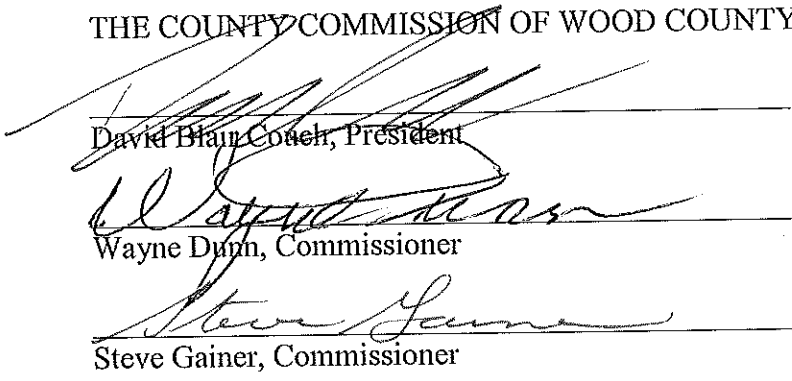 THE COUNTY COMMISSION OF WOOD COUNTY
David Blair Couch, President
Wayne Dunn
Wayne Dunn, Commissioner
Steve Gainer
Steve Gainer, Commissioner